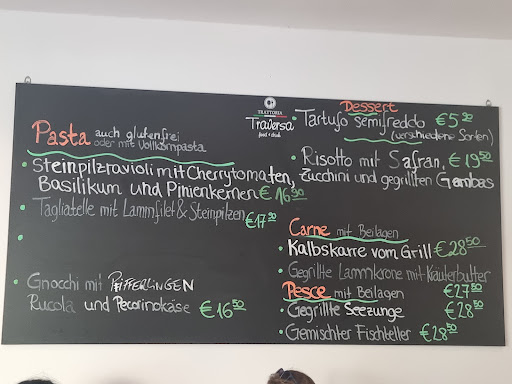 TRATTORIA
Traversa
food + drink
Pasta auch glutenfrei
oder mit Vollkornpasta
• Steinpilzravioli mit Cherrytomaten,
Basilikum und Pinienkernen € 16,90
• Tagliatelle mit Lammfilet & Steinpilzen
€ 17,90
•
• Gnocchi mit PFIFFERLINGEN
Rucola und Pecorinokäse € 16,50
Dessert
• Tartufo semifreddo € 5,90
(verschiedene Sorten)
• Risotto mit Safran, € 19,50
Zucchini und gegrillten Gambas
Carne mit Beilagen
• Kalbskarre vom Grill € 28,50
• Gegrillte Lammkrone mit Kräuterbutter
€ 27,50
Pesce mit Beilagen
• Gegrillte Seezunge € 28,50
• Gemischter Fischteller € 28,50